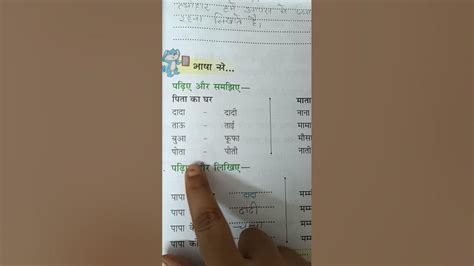 रहना सिखाते हैं,
भाषा से...
पढ़िए और समझिए—
पिता का घर
दादा - दादी
ताऊ - ताई
बुआ - फूफा
पोता - पोती
माता
नाना
मामा
मौसा
नाती
पढ़िए और लिखिए—
पापा दादा
पापा दादी
पापा के
पापा की
मम्मी
मम्
मम्
मम्